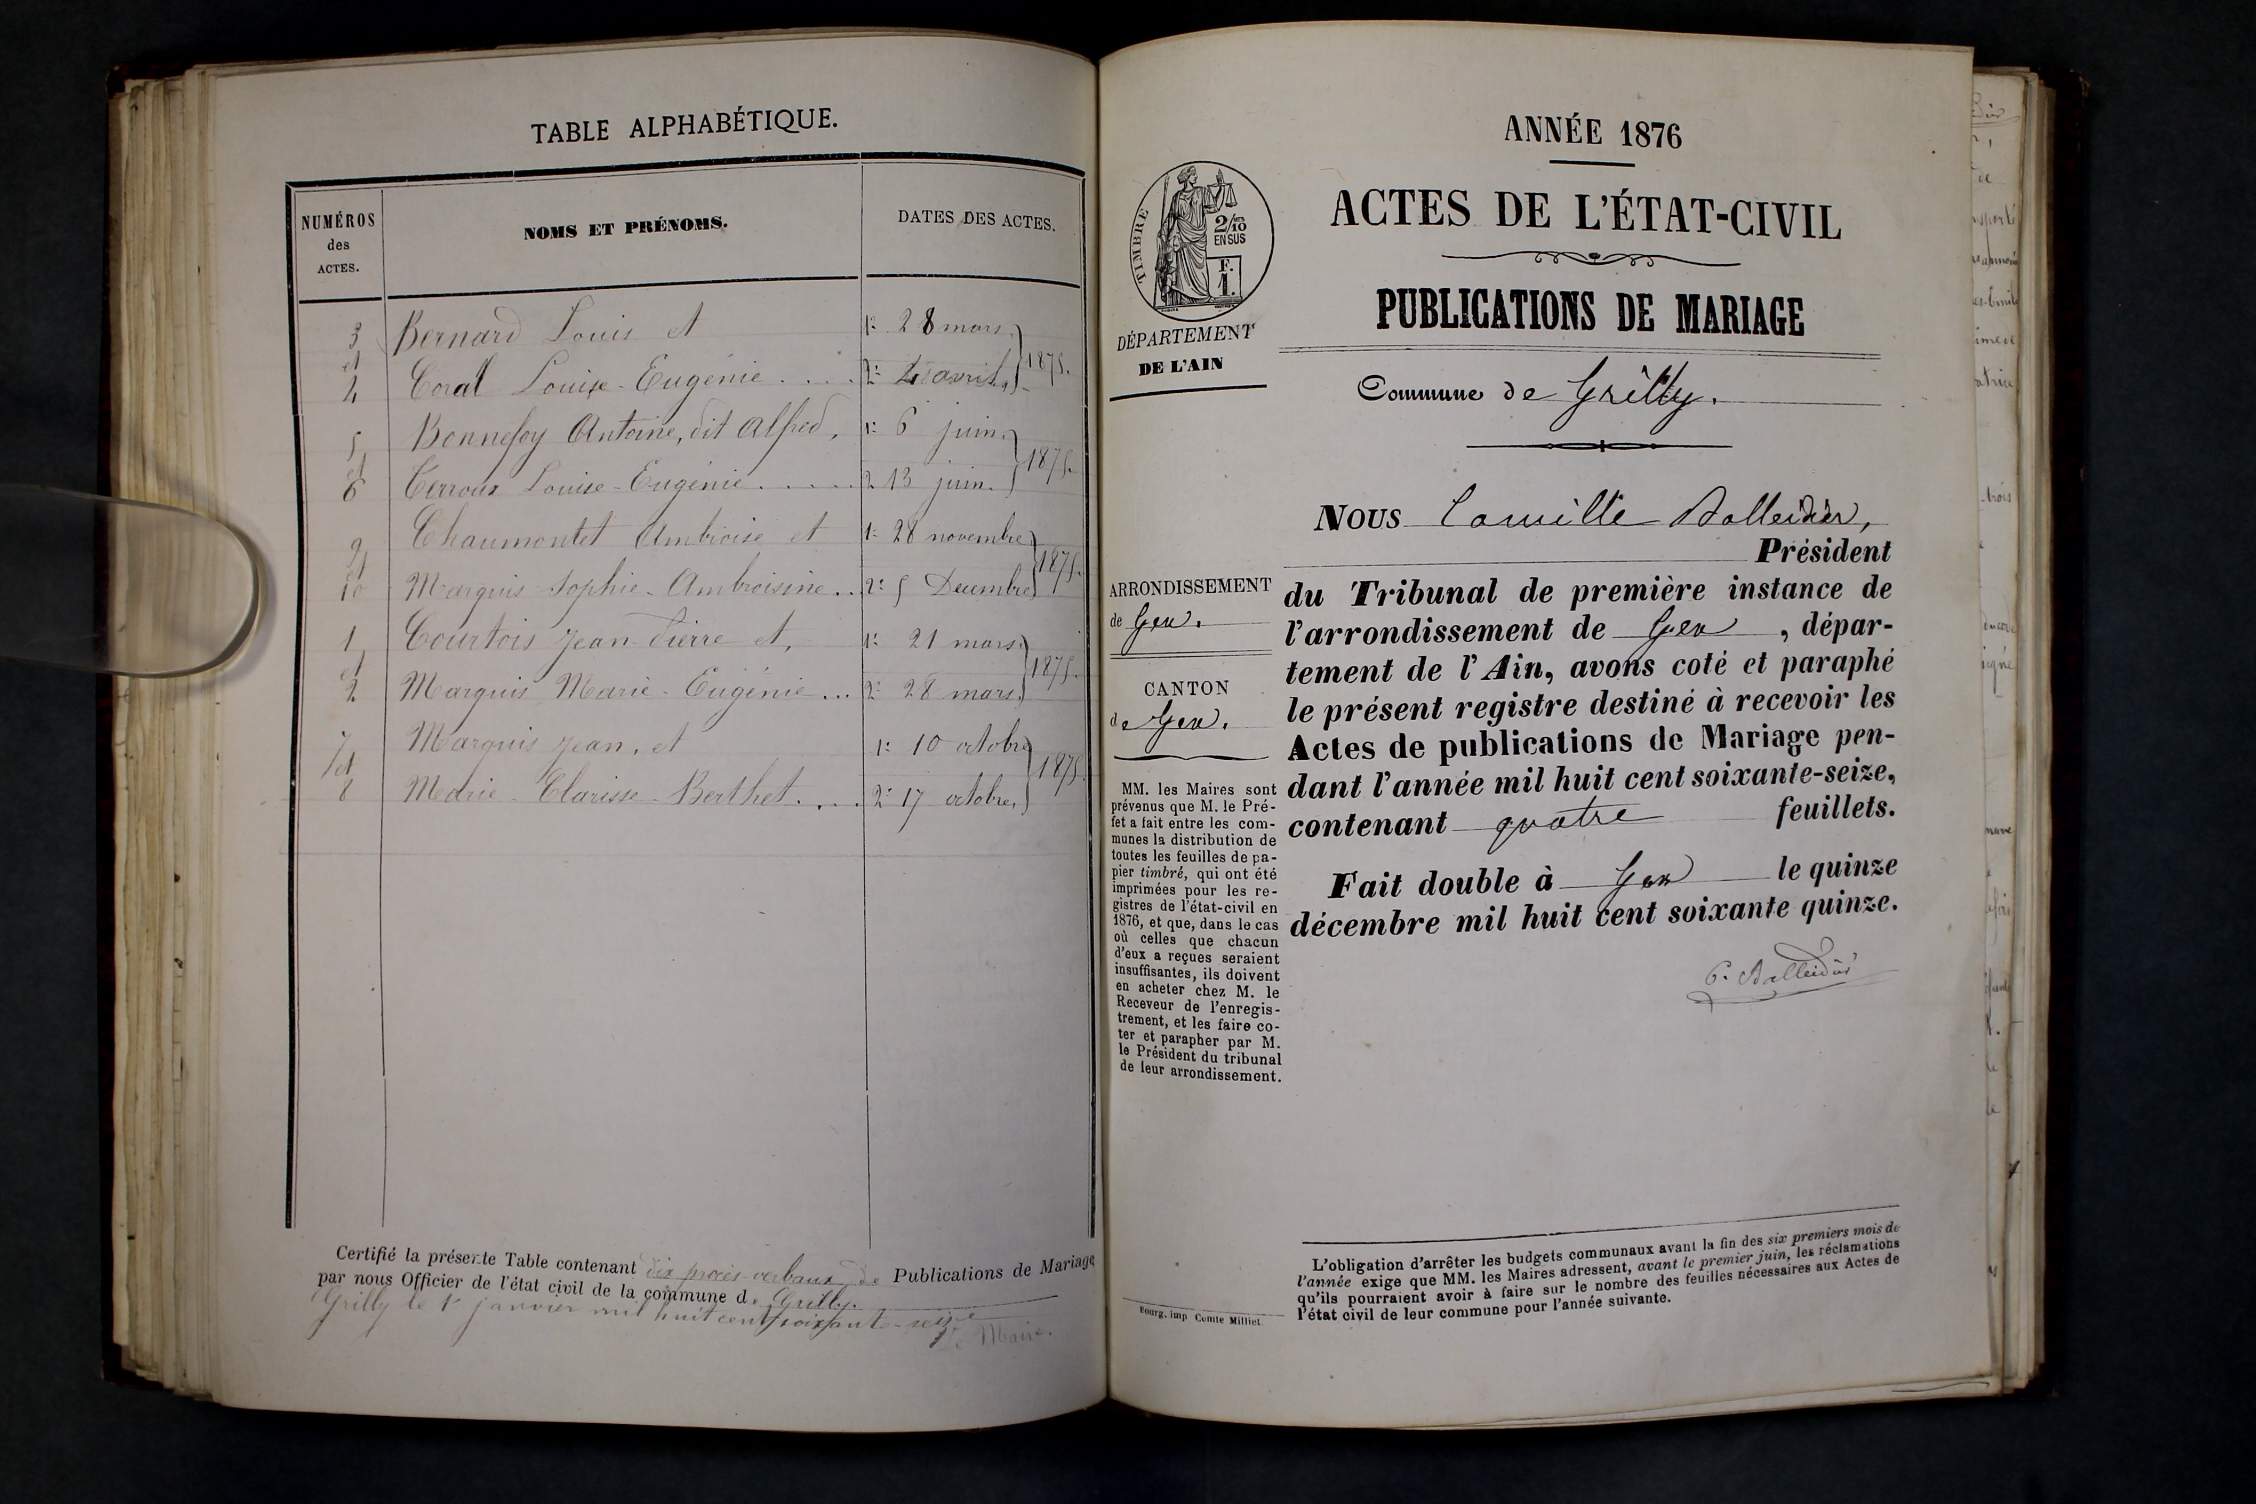 TABLE ALPHABÉTIQUE.
NUMÉROS
des
ACTES.
NOMS ET PRÉNOMS.
DATES DES ACTES.
3 Bernard Louis et 1º 28 mars
et 1875.
4 Coral Louise-Eugénie . . . . 2º avril
5 Bonnefoy Antoine, dit Alfred, 1º 6 juin
et 1875.
6 Terroux Louise-Eugénie . . . . . 2 13 juin.
9 Chaumontet Ambroise et 1º 28 novembre
et 1875.
10 Marquis Sophie-Ambroisine . . 2º 5 Decembre
1 Courtois Jean-Pierre et, 1º 21 mars
et 1875.
2 Marquis Marie-Eugénie ... 2º 28 mars.
7 Marquis Jean, et 1º 10 octobre
et 1875.
8 Marie-Clarisse-Berthet . . . . 2º 17 octobre.
Certifié la présente Table contenant dix procès-verbaux de Publications de Mariage
par nous Officier de l'état civil de la commune de Grilly.
Grilly le 1er janvier mil huit cent soixante-seize
Maire.
ANNÉE 1876
ACTES DE L'ÉTAT-CIVIL
PUBLICATIONS DE MARIAGE
TIMBRE
2/10
EN SUS
F.
1.
DÉPARTEMENT
DE L'AIN
Commune de Grilly.
ARRONDISSEMENT
de Gex.
CANTON
de Gex.
MM. les Maires sont
prévenus que M. le Pré-
fet a fait entre les com-
munes la distribution de
toutes les feuilles de pa-
pier timbré, qui ont été
imprimées pour les re-
gistres de l'état-civil en
1876, et que, dans le cas
où celles que chacun
d'eux a reçues seraient
insuffisantes, ils doivent
en acheter chez M. le
Receveur de l'enregis-
trement, et les faire co-
ter et parapher par M.
le Président du tribunal
de leur arrondissement.
NOUS Camille Balleidier,
Président
du Tribunal de première instance de
l'arrondissement de Gex , dépar-
tement de l'Ain, avons coté et paraphé
le présent registre destiné à recevoir les
Actes de publications de Mariage pen-
dant l'année mil huit cent soixante-seize,
contenant quatre feuillets.
Fait double à Gex le quinze
décembre mil huit cent soixante quinze.
C. Balleidier
L'obligation d'arrêter les budgets communaux avant la fin des six premiers mois de
l'année exige que MM. les Maires adressent, avant le premier juin, les réclamations
qu'ils pourraient avoir à faire sur le nombre des feuilles nécessaires aux Actes de
l'état civil de leur commune pour l'année suivante.
Bourg, imp Comte Milliet